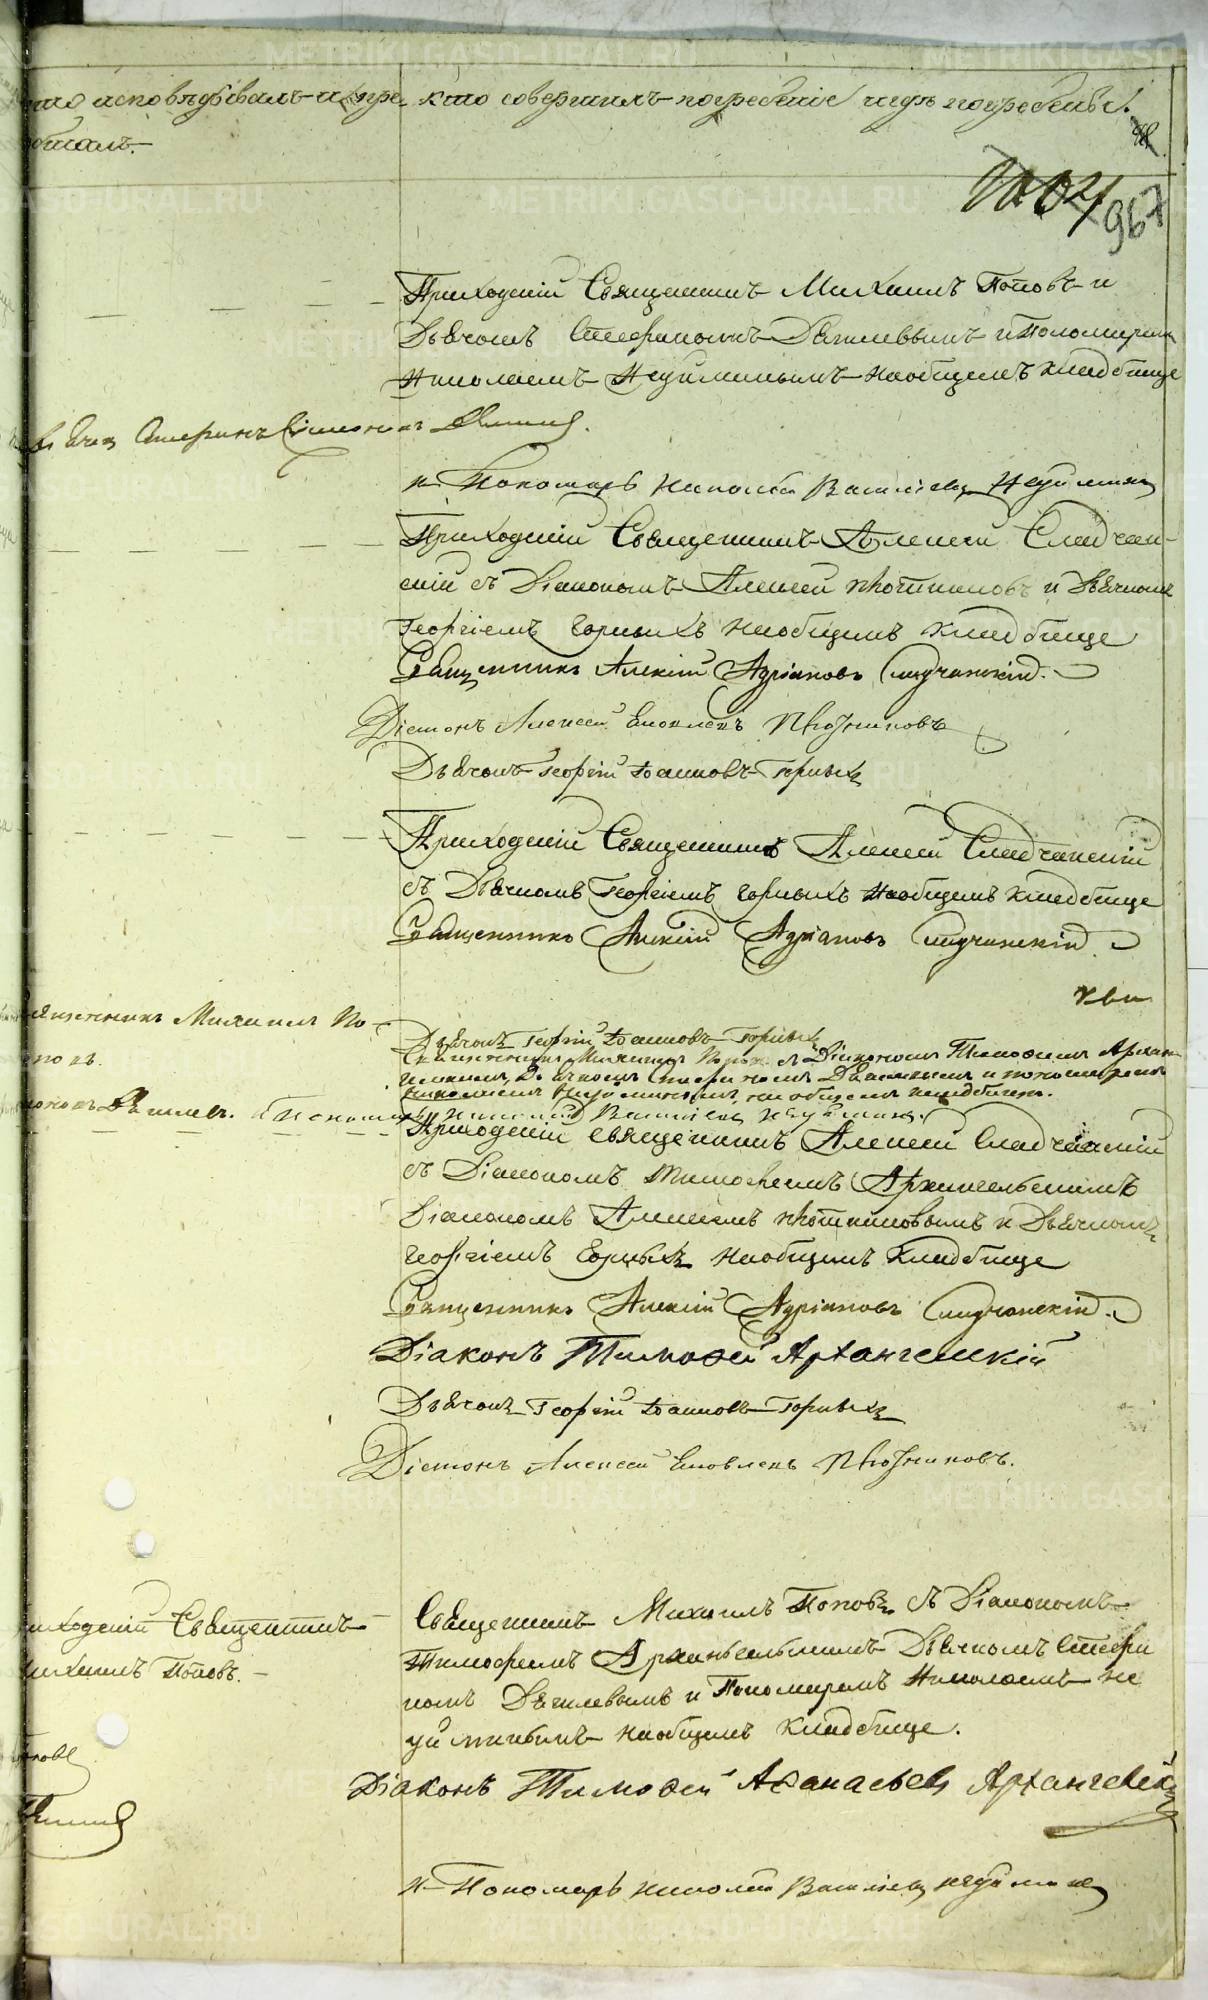 кто исповѣдывалъ и пре- кто совершилъ погребеніе и гдѣ погребены.
общалъ.
967
Приходскій Священникъ Михаилъ Поповъ и
Дьячкомъ Стефаномъ Дягилевымъ и Пономаремъ
Николаемъ Неуйминымъ на общемъ кладбище
Дьячек Стефанъ
и Пономарь Николай Васильевъ Неуйминъ
Приходскій Священникъ Алексей Сладчан-
скій съ Діакономъ Алексей Плотниковъ и Дьячкомъ
Георгіемъ Горныхъ на общемъ кладбище
Священникъ Алексій Адріановъ Сладчанскій.
Діаконъ Алексей Яковлевъ Плотниковъ
Дьячокъ Георгій Іоанновъ Горныхъ
Приходскій Священникъ Алексей Сладчанскій
съ Дьячкомъ Георгіемъ Горныхъ на общемъ кладбище
Священникъ Алексій Адріановъ Сладчанскій
Священникъ Михаилъ По-
повъ.
Дьячокъ Георгій Іоанновъ Горныхъ
Священникъ Михаилъ Поповъ съ Діакономъ Тимофеемъ Архан-
гельскимъ, Дьячкомъ Стефаномъ Дягилевымъ и пономаремъ
Николаемъ Неуйминымъ, на общемъ кладбище.
Дягилев. и Пономарь Николай Васильевъ Неуйминъ.
Приходскій Священникъ Алексей Сладчанскій
съ Діакономъ Тимофеемъ Архангельскимъ
Діакономъ Алексеемъ Плотниковымъ и Дьячкомъ
Георгіемъ Горныхъ на общемъ кладбище
Священникъ Алексій Адріановъ Сладчанскій.
Діаконъ Тимоѳей Архангелскій
Дьячокъ Георгій Іоанновъ Горныхъ
Діаконъ Алексей Яковлевъ Плотниковъ.
Приходскій Священникъ
Михаилъ Поповъ.
Священникъ Михаилъ Поповъ съ Діакономъ
Тимофеемъ Архангельскимъ Дьячкомъ Стефа
номъ Дягилевымъ и Пономаремъ Николаемъ Не
уйминымъ на общемъ кладбище.
Діаконъ Тимоѳей Аѳанасьевъ Архангелск
и Пономарь Николай Васильевъ Неуйминъ